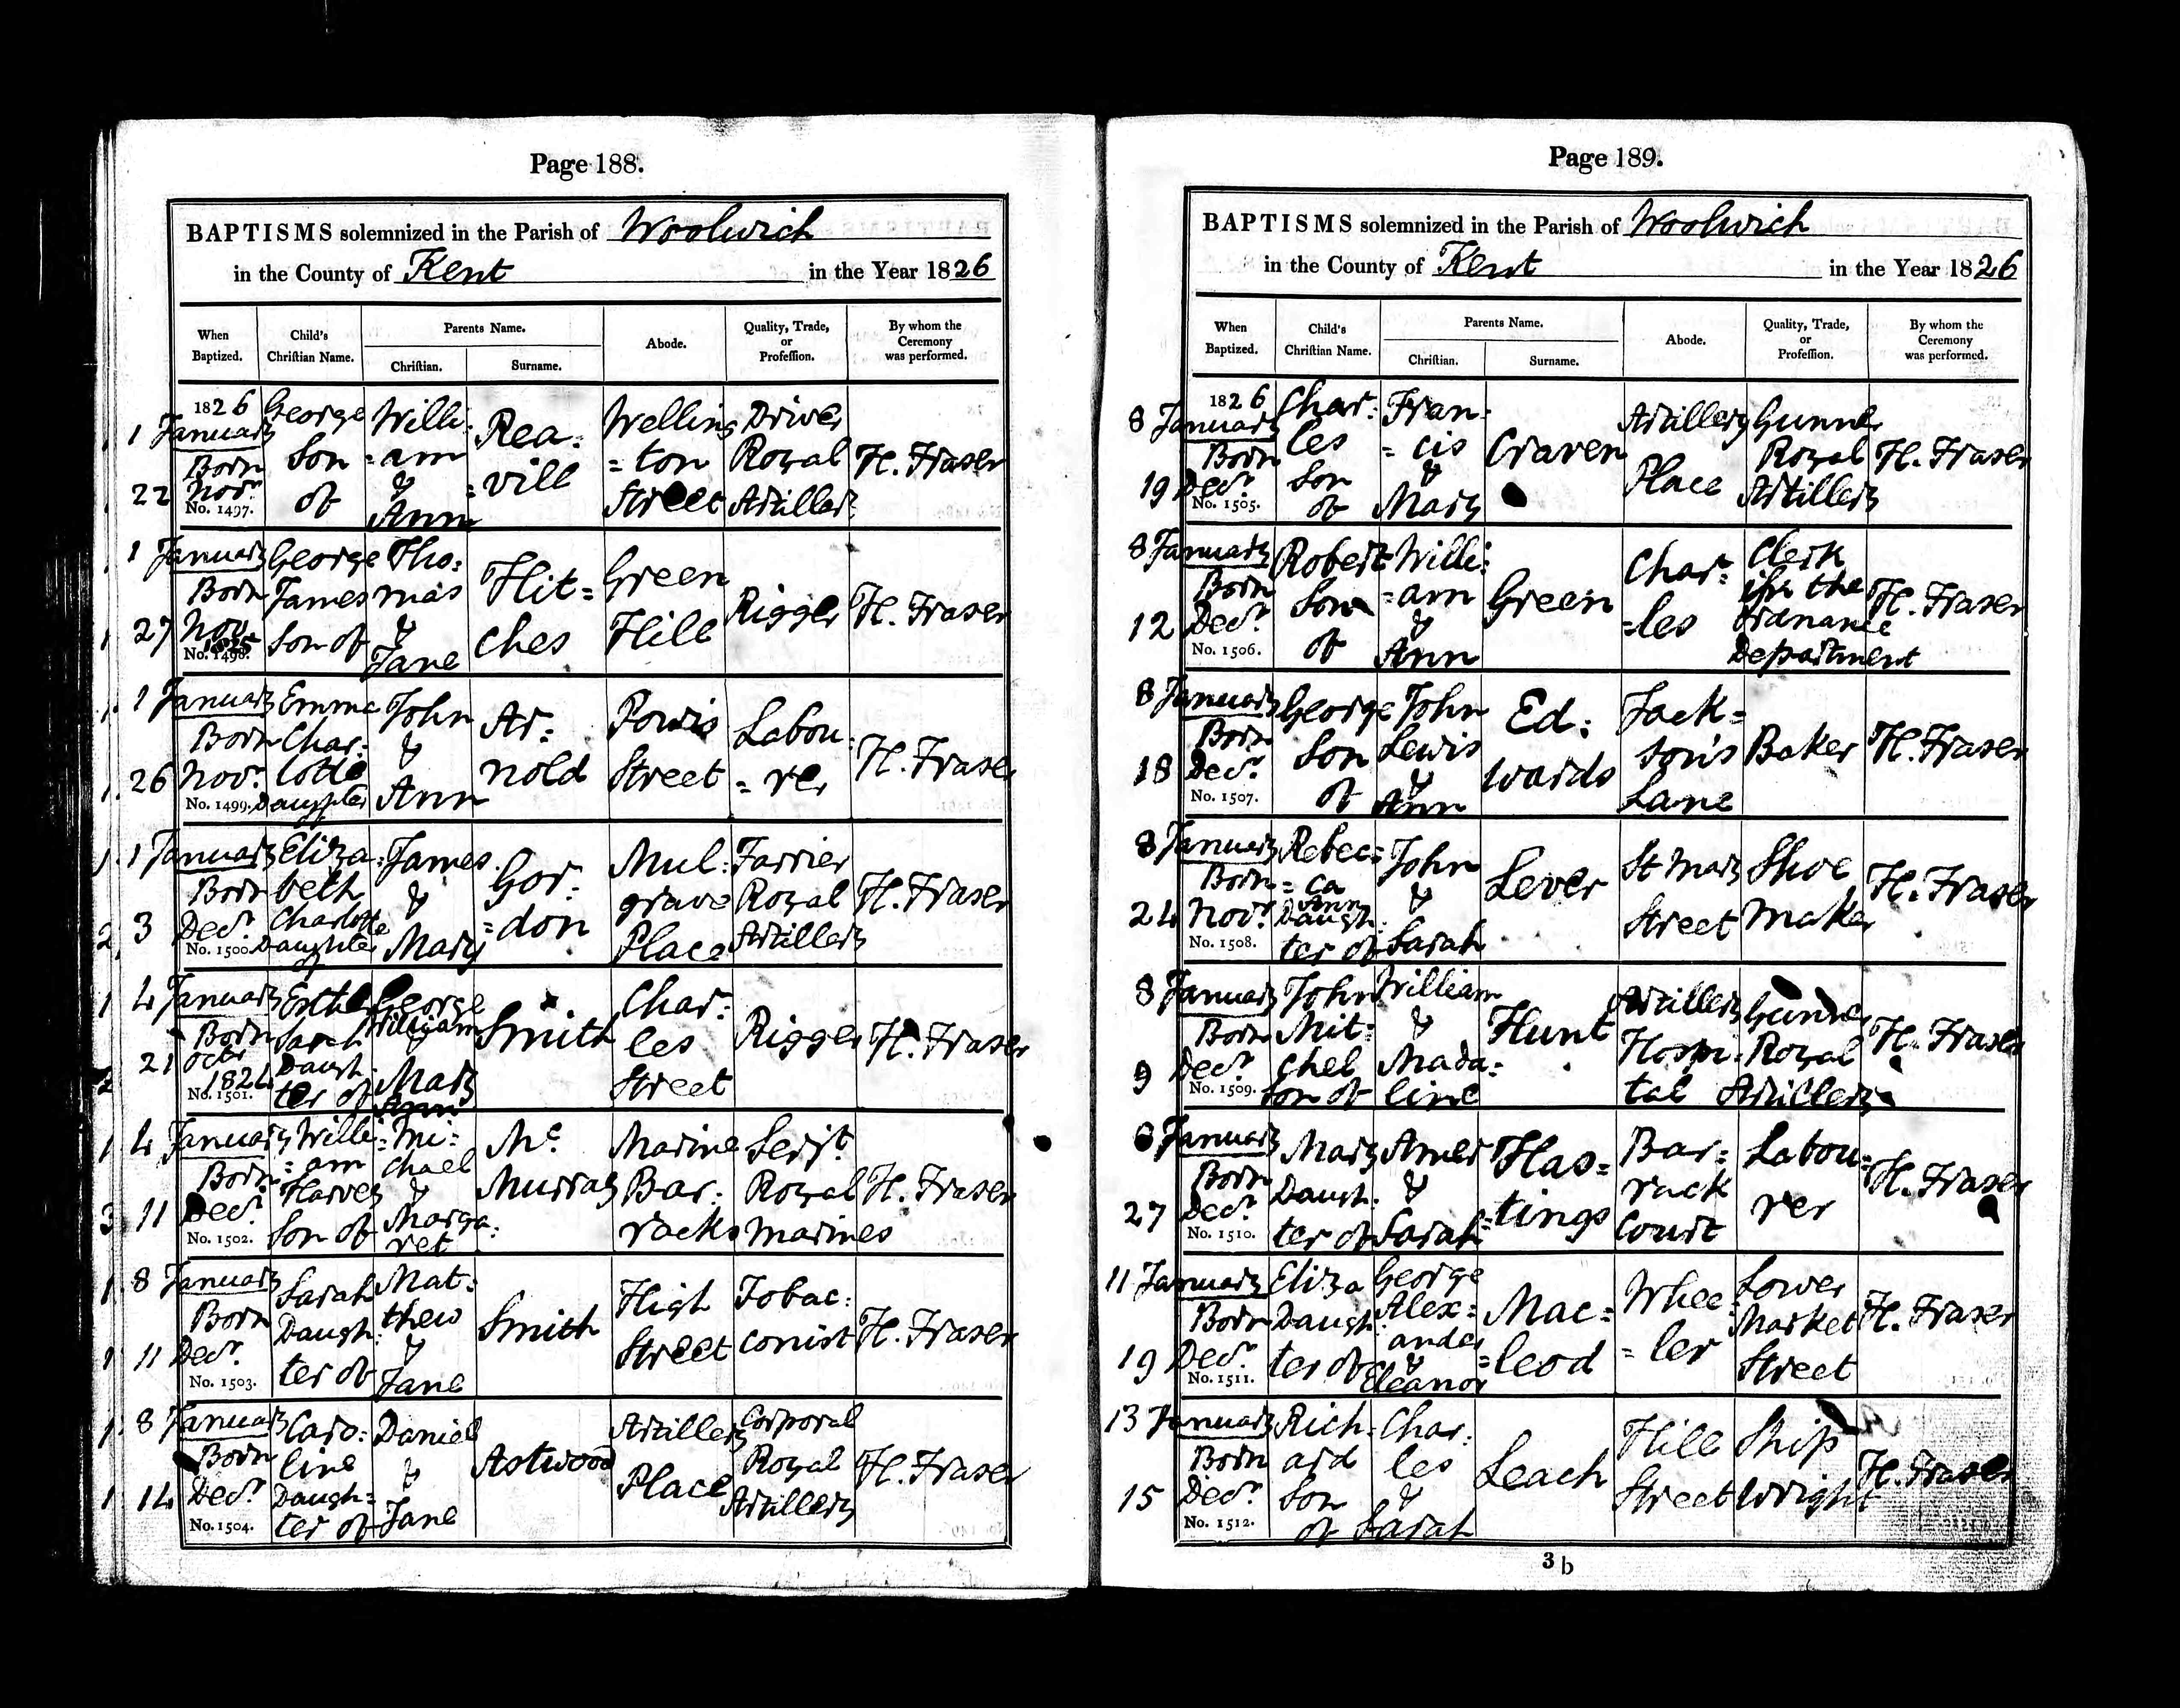 Page 188.
BAPTISMS solemnized in the Parish of Woolwich
in the County of Kent in the Year 1826
When Baptized. Child's Christian Name. Parents Name. Christian. Surname. Abode. Quality, Trade, or Profession. By whom the Ceremony was performed.
1826
1 January Born 22 Novr. No. 1497. George Son of Willi=am & Ann Rea:=vill Welling=ton Street Driver Royal Artiller: H. Fraser
1 January Born 27 Nov 1825 No. 1498. George James Son of Tho:mas & Jane Hit=ches Green Hill Rigger H. Fraser
1 January Born 26 Novr. No. 1499. Emma Char:lotte Daughter of John & Ann Ar:nold Powis Street Labou:=rer H. Fraser
1 January Born 3 Decr. No. 1500. Eliza:beth Charlotte Daughter of James & Mary Gor:=don Mul:grave Place Farrier Royal Artillery H. Fraser
4 January Born 21 Octr 1824 No. 1501. Esther Sarah Daugh:ter of George William & Mary Ann Smith Char:les Street Rigger H. Fraser
4 January Born 11 Decr. No. 1502. Willi=am Harvey Son of Mi:chael & Marga:ret Mc. Murray Marine Bar:racks Serjt. Royal Marines H. Fraser
8 January Born 11 Decr. No. 1503. Sarah Daugh:ter of Mat:thew & Jane Smith High Street Tobac:conist H. Fraser
8 January Born 14 Decr. No. 1504. Caro:line Daugh=ter of Daniel & Jane Astwood Artillery Place Corporal Royal Artillery H. Fraser
Page 189.
BAPTISMS solemnized in the Parish of Woolwich
in the County of Kent in the Year 1826
When Baptized. Child's Christian Name. Parents Name. Christian. Surname. Abode. Quality, Trade, or Profession. By whom the Ceremony was performed.
1826
8 January Born 19 Decr. No. 1505. Char:les Son of Fran:=cis & Mary Craven Artillery Place Gunner Royal Artillery H. Fraser
8 January Born 12 Decr. No. 1506. Robert Son of Willi:=am & Ann Green Char:=les Clerk in the Ordnance Department H. Fraser
8 January Born 18 Decr. No. 1507. George Son of John Lewis & Ann Ed:wards Jack=son's Lane Baker H. Fraser
8 January Born 24 Novr. No. 1508. Rebec:=ca Ann Daugh:ter of John & Sarah Lever St Mary Street Shoe Maker H. Fraser
8 January Born 9 Decr. No. 1509. John Mit:chel Son of William & Mada:line Hunt Artillery Hospi:tal Gunner Royal Artillery H. Fraser
8 January Born 27 Decr. No. 1510. Mary Daugh:ter of Amer & Sarah Has=tings Bar:rack Court Labou:rer H. Fraser
11 January Born 19 Decr. No. 1511. Eliza Daugh:ter of George Alex=ander & Eleanor Mac==leod Whee:=ler Lower Market Street H. Fraser
13 January Born 15 Decr. No. 1512. Rich:ard Son of Char:les & Sarah Leach Hill Street Ship Wright H. Fraser
3 b